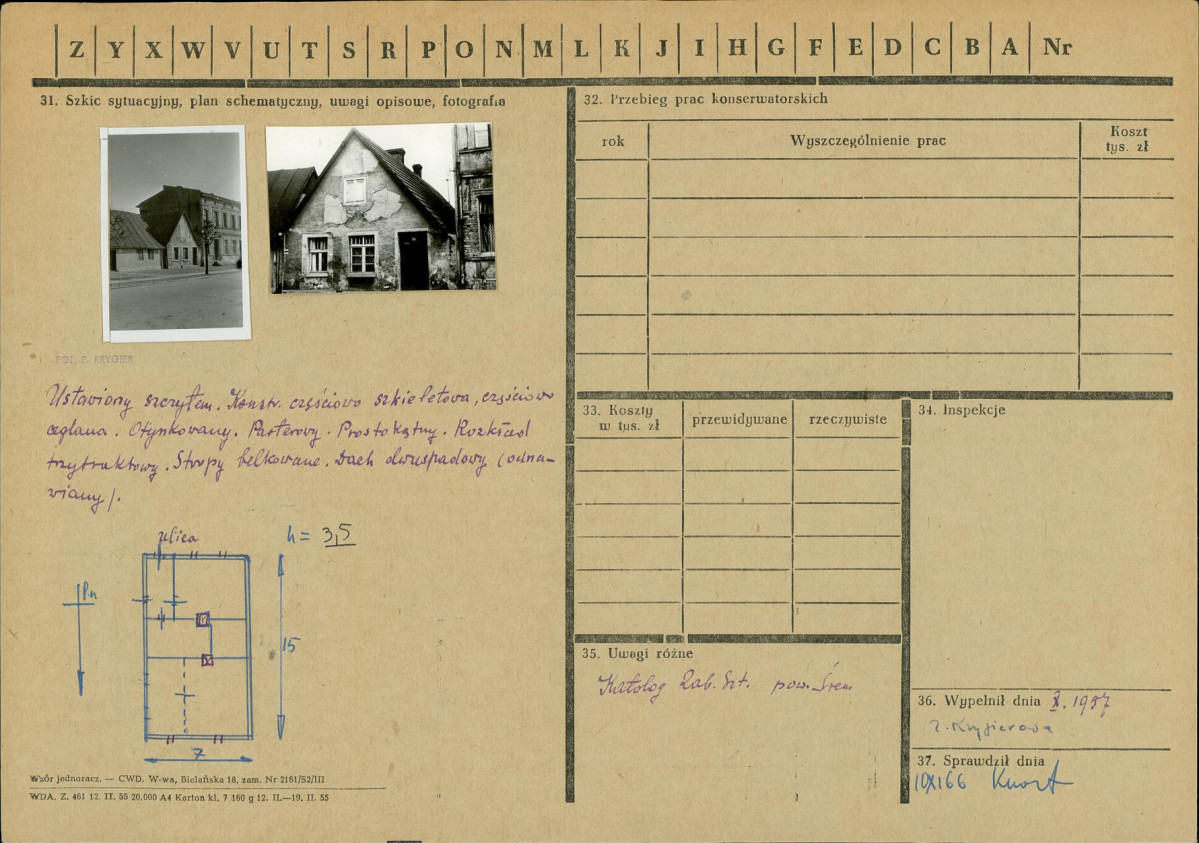 Z Y X W V U T S R P O N M L K J I H G F E D C B A Nr
31. Szkic sytuacyjny, plan schematyczny, uwagi opisowe, fotografia
FOT. E. KRYGIER
Ustawiony szczytem. Konstr. częściowo szkieletowa, częściowo
ceglana. Otynkowany. Parterowy. Prostokątny. Rozkład
trzytraktowy. Stropy belkowane. Dach dwuspadowy (odna-
wiany).
ulica
h = 3,5
Pn
15
7
Wzór jednoracz. — CWD. W-wa, Bielańska 18, zam. Nr 2161/S2/III
WDA. Z. 461 12. II. 55 20,000 A4 Karton kl. 7 160 g 12. II.—19. II. 55
32. Przebieg prac konserwatorskich
rok
Wyszczególnienie prac
Koszt
tys. zł
33. Koszty
w tys. zł
przewidywane
rzeczywiste
34. Inspekcje
35. Uwagi różne
Katalog Zab. Szt. pow. Śrem
36. Wypełnił dnia X. 1957
Krygierowa
37. Sprawdził dnia
10 XI 66